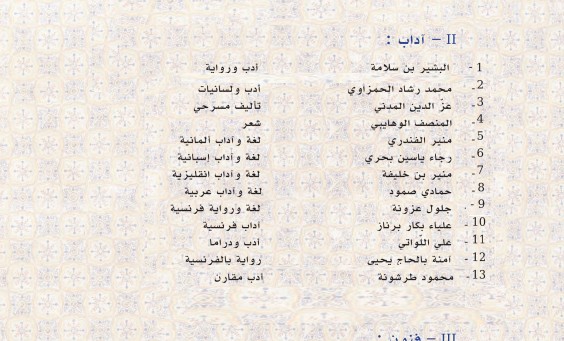 II – آداب :
1 - البشير بن سلامة أدب ورواية
2 - محمد رشاد الحمزاوي أدب ولسانيات
3 - عزّ الدين المدني تأليف مسرحي
4 - المنصف الوهايبي شعر
5 - منير الفندري لغة وآداب ألمانية
6 - رجاء ياسين بحري لغة وآداب إسبانية
7 - منير بن خليفة لغة وآداب انقليزية
8 - حمادي صمود لغة وآداب عربية
9 - جلول عزونة لغة ورواية فرنسية
10 - علياء بكار برناز آداب فرنسية
11 - علي اللّواتي أدب ودراما
12 - آمنة بالحاج يحيى رواية بالفرنسية
13 - محمود طرشونة أدب مقارن
III – فنون :